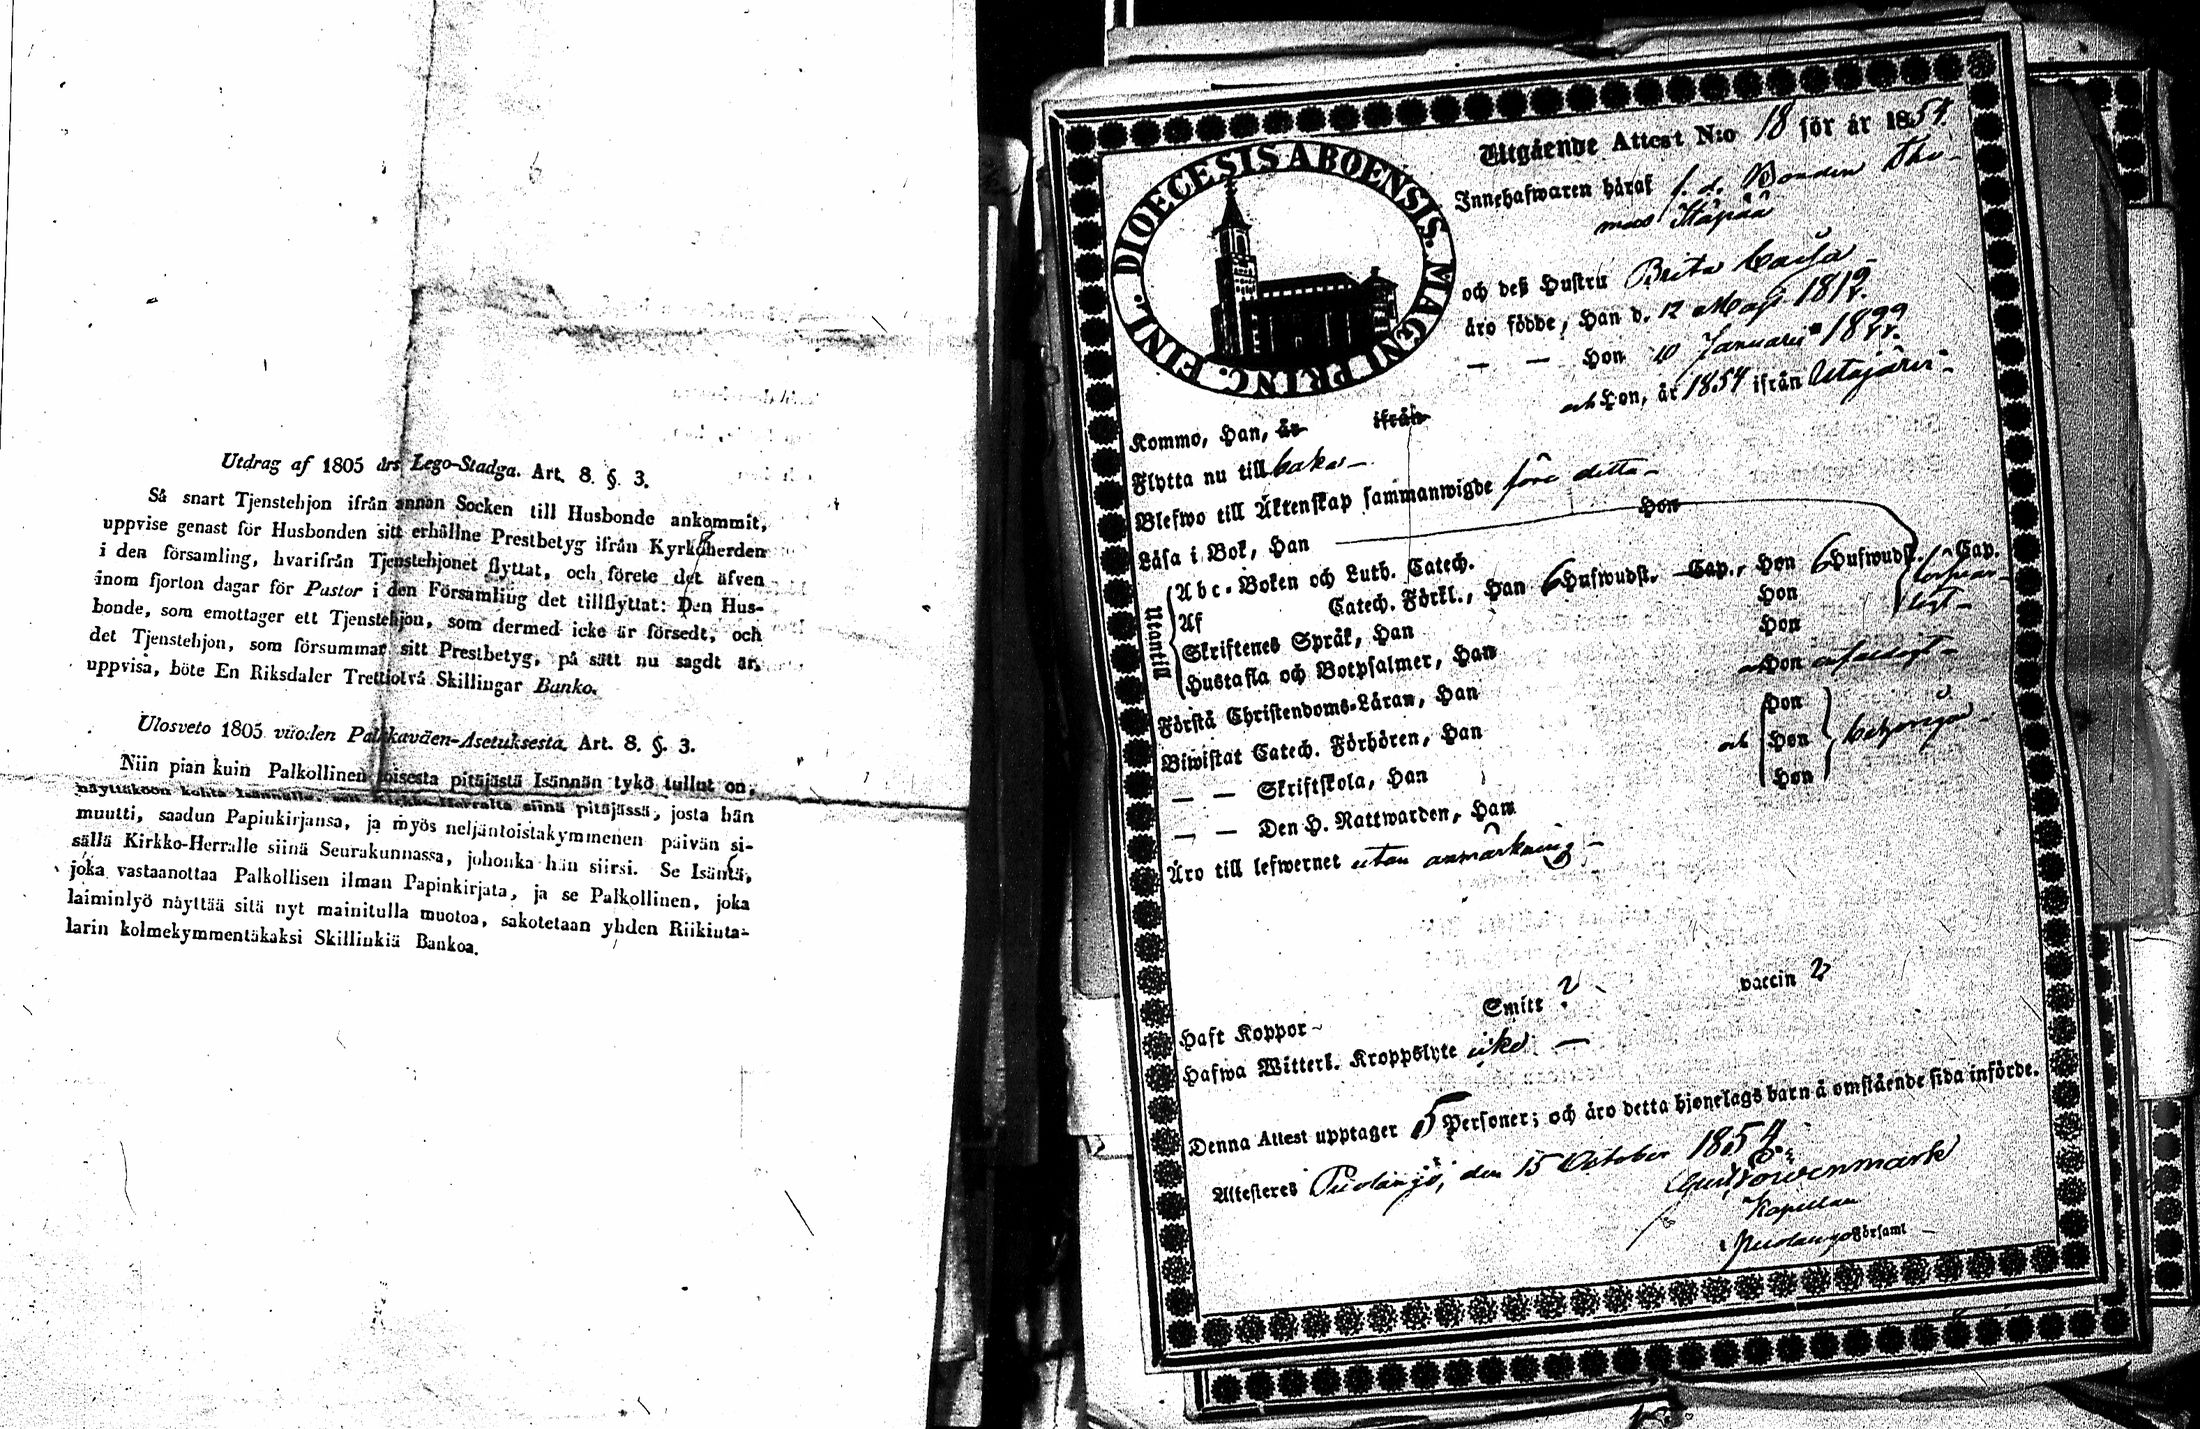 Utdrag af 1805 års Lego-Stadga. Art. 8. §. 3.
Så snart Tjenstehjon ifrån annan Socken till Husbonde ankommit,
uppvise genast för Husbonden sitt erhållne Prestbetyg ifrån Kyrkoherden
i den församling, hvarifrån Tjenstehjonet flyttat, och förete det äfven
inom fjorton dagar för Pastor i den Församling det tillflyttat: Den Hus-
bonde, som emottager ett Tjenstehjon, som dermed icke är försedt, och
det Tjenstehjon, som försummar sitt Prestbetyg, på sätt nu sagdt är,
uppvisa, böte En Riksdaler Trettiotvå Skillingar Banko.
Ulosveto 1805 vuoden Palkkaväen-Asetuksesta. Art. 8. §. 3.
Niin pian kuin Palkollinen toisesta pitäjästä Isännän tykö tullut on,
näyttäköön kohta Isännälle, sen Kirkko-Herralta siinä pitäjässä, josta hän
muutti, saadun Papinkirjansa, ja myös neljäntoistakymmenen päivän si-
sällä Kirkko-Herralle siinä Seurakunnassa, johonka hän siirsi. Se Isäntä,
joka vastaanottaa Palkollisen ilman Papinkirjata, ja se Palkollinen, joka
laiminlyö näyttää sitä nyt mainitulla muotoa, sakotetaan yhden Riikinta-
larin kolmekymmentäkaksi Skillinkiä Bankoa.
DIOECESIS ABOENSIS. MAGNI PRINC. FINL.
Utgående Attest N:o 18 för år 1854.
Innehafwaren häraf f. d. Bonden Tho-
mas Itäpää
och deß Hustru Brita Caisa
äro födde, Han d. 12 Maji 1819
— — Hon 10 Januarii 1822.
Kommo, Han, år ifrån och Hon, år 1854 ifrån Utajärvi
Flytta nu till bakas —
Blefwo till Äktenskap sammanwigde före detta —
Läsa i Bok, Han Hon
Utantill
Abc-Boken och Luth. Catech.
Af Catech. Förkl., Han 6 Hufwudst. Cap., Hon 6 Hufwudst. Cap.
Skriftenes Språk, Han Hon
Hustafla och Botpsalmer, Han Hon
Förstå Christendoms-Läran, Han och Hon
Biwistat Catech. Förhören, Han Hon
— — Skriftskola, Han och Hon
— — Den H. Nattwarden, Han Hon
Äro till lefwernet utan anmärkning —
Haft Koppor Smitt ? vaccin ?
Hafwa Witterl. Kroppslyte icke —
Denna Attest upptager 5 Personer; och äro detta hjonelags barn å omstående sida införde.
Attesteres Puolango, den 15 October 1854.
Kapellan
i Puolango Församl